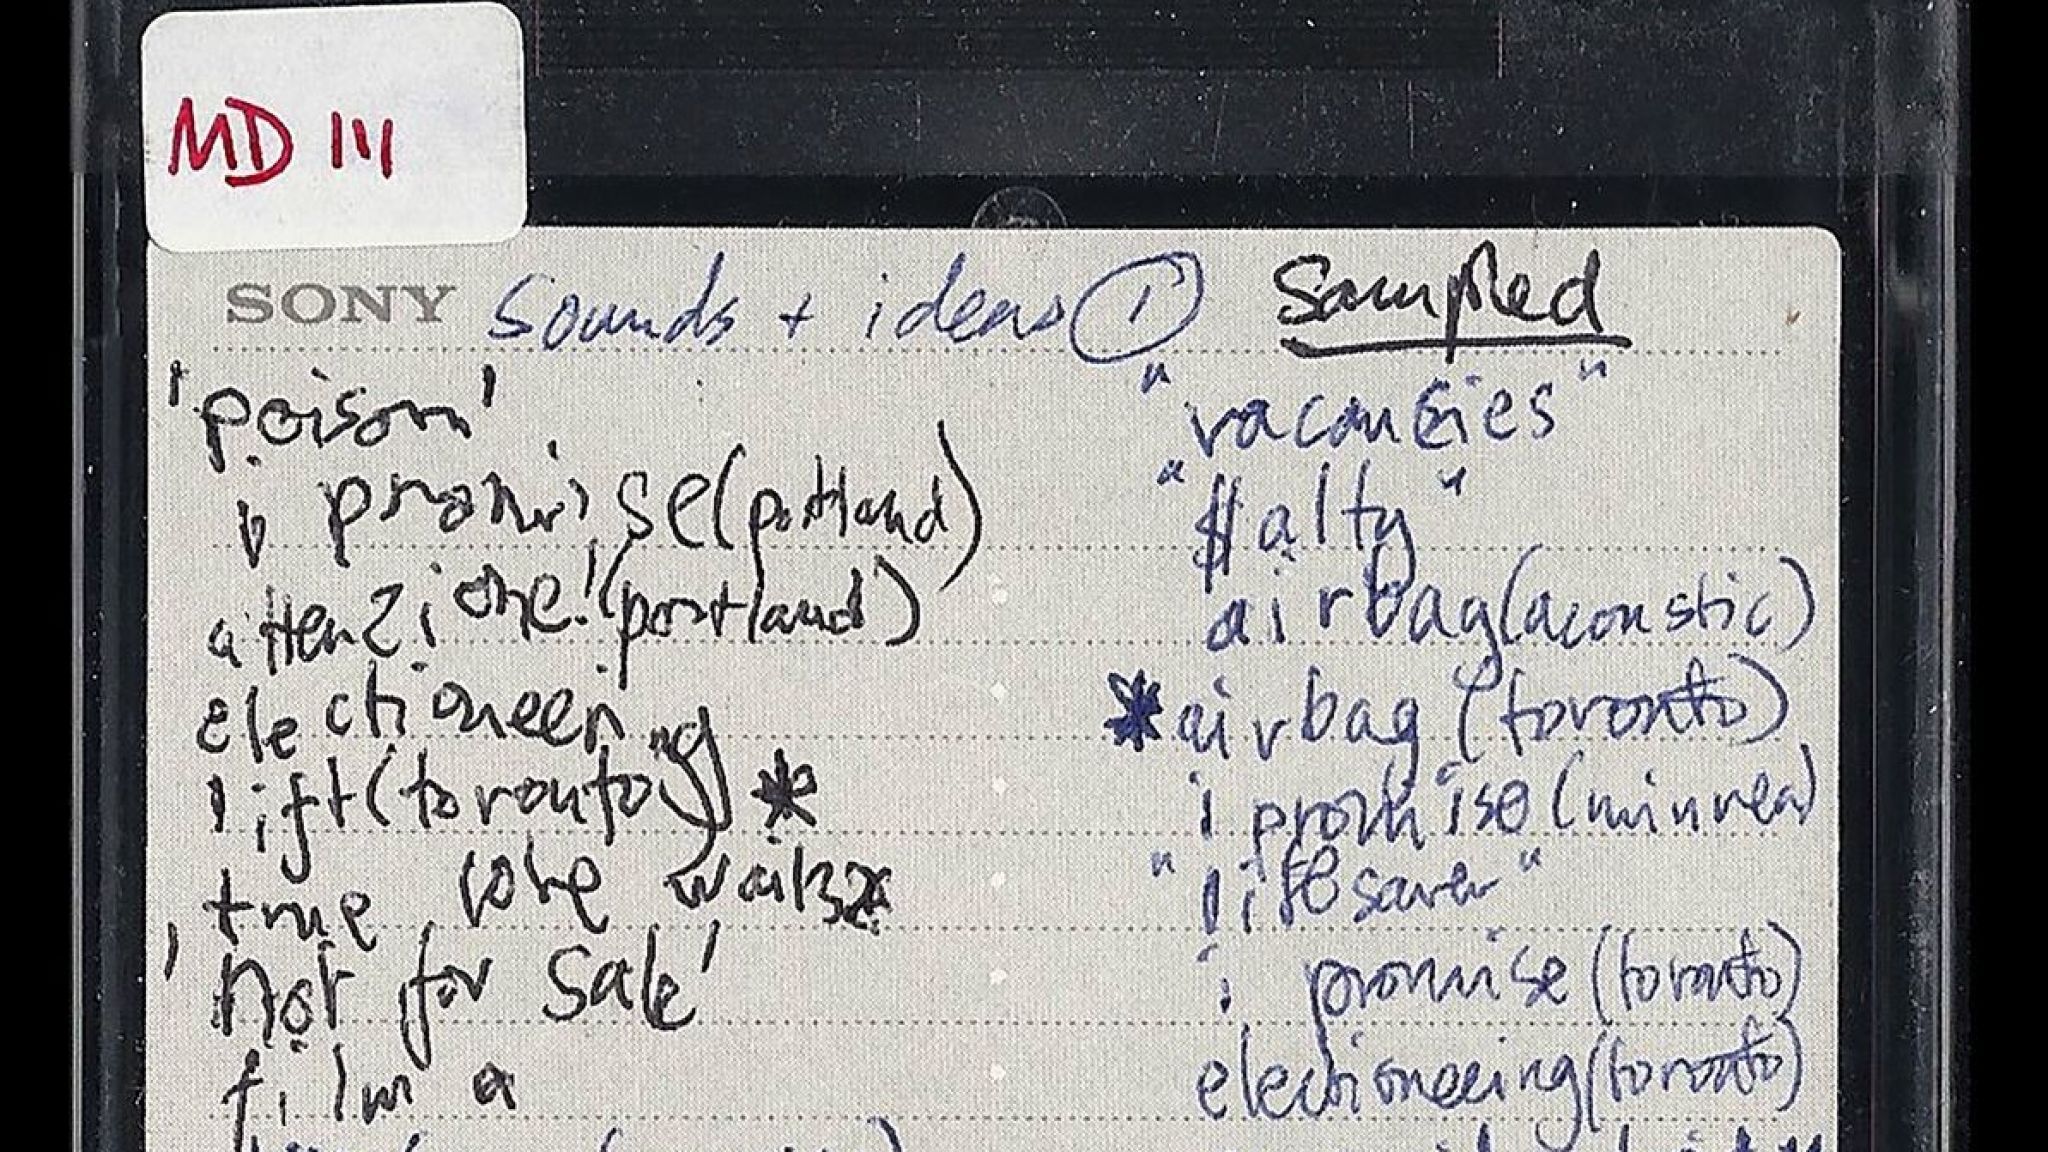 MD 111
SONY sounds + ideas ① sampled
'poison'
i promise (portland)
attenzione! (portland)
electioneering
lift (toronto) *
true love waits
'not for sale'
film a
"vacancies"
"$alty"
airbag (acoustic)
* airbag (toronto)
i promise (minnea)
"lifesaver"
i promise (toronto)
electioneering (toronto)